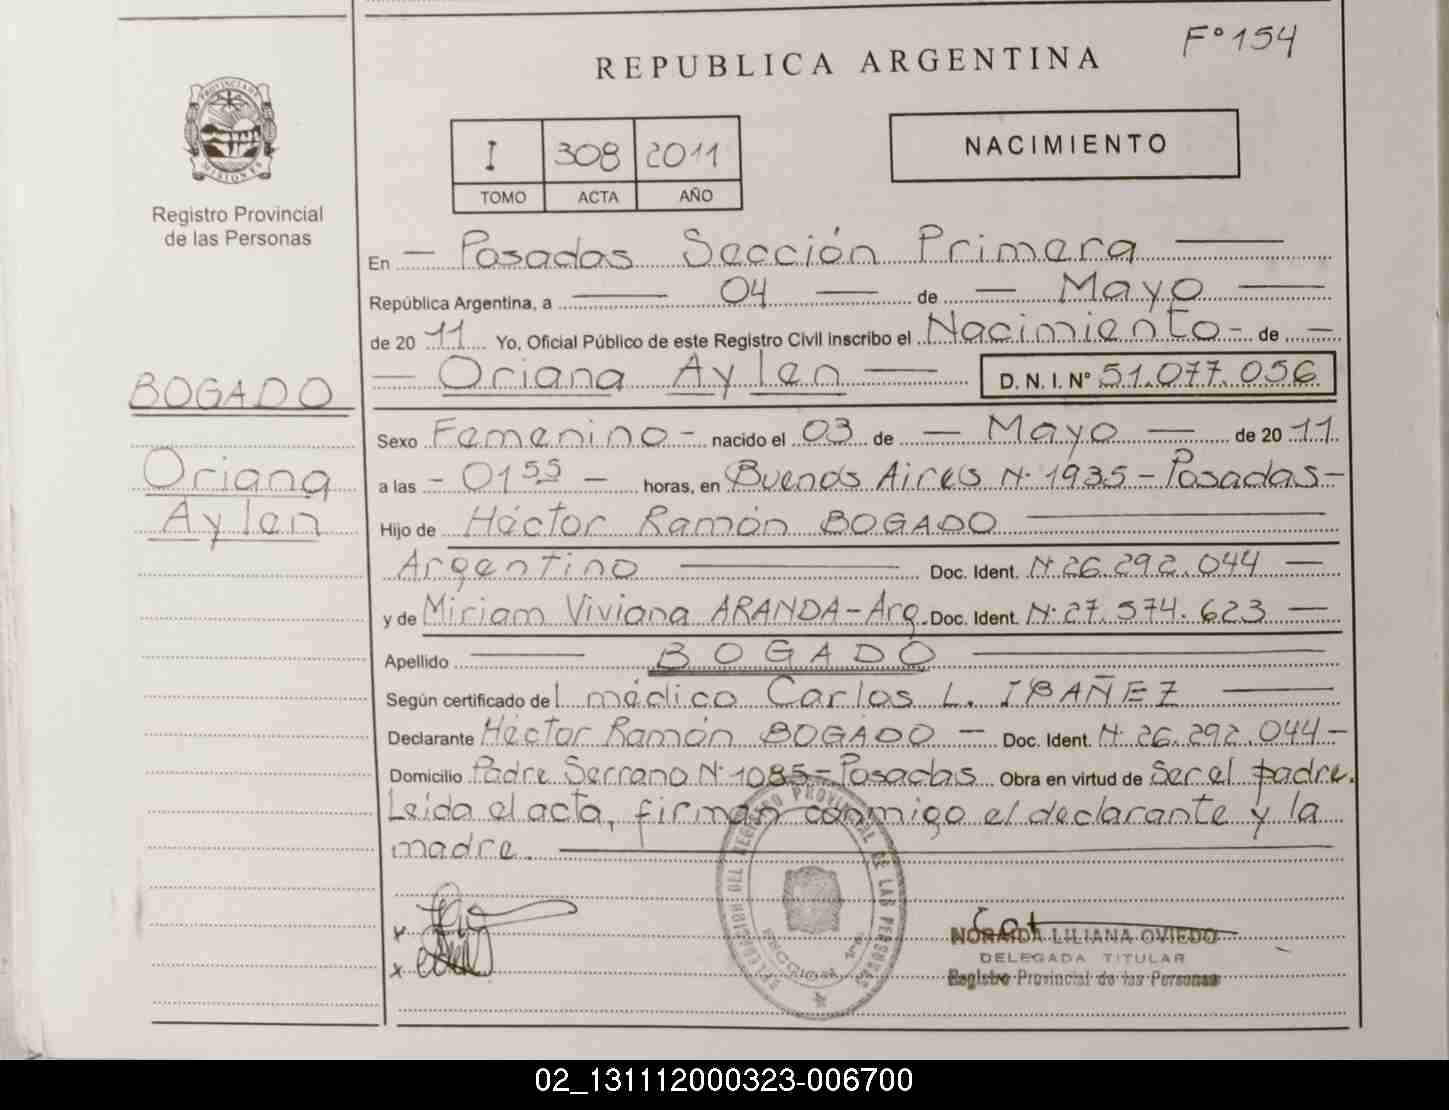 F° 154
REPUBLICA ARGENTINA
PROVINCIA DE MISIONES
Registro Provincial
de las Personas
I 308 2011
TOMO ACTA AÑO
NACIMIENTO
En — Posadas Sección Primera —
República Argentina, a — 04 — de — Mayo —
de 2011 Yo, Oficial Público de este Registro Civil inscribo el Nacimiento - de —
— Oriana Aylen — D. N. I. N° 51.077.056
BOGADO
Oriana
Aylen
Sexo Femenino - nacido el 03 de — Mayo — de 2011
a las - 01 55 - horas, en Buenos Aires N° 1935 - Posadas -
Hijo de Héctor Ramón BOGADO —
Argentino — Doc. Ident. N° 26.292.044 —
y de Miriam Viviana ARANDA - Arg. Doc. Ident. N° 27.574.623 —
Apellido — BOGADO —
Según certificado del médico Carlos L. IBAÑEZ —
Declarante Héctor Ramón BOGADO — Doc. Ident. N° 26.292.044 -
Domicilio Padre Serrano N° 1085 - Posadas Obra en virtud de ser el padre.
Leída el acta, firman conmigo el declarante y la
madre. —
DELEGACION DEL REGISTRO PROVINCIAL DE LAS PERSONAS
SECCION 1ra
x
x
NORAIDA LILIANA OVIEDO
DELEGADA TITULAR
Registro Provincial de las Personas
02_131112000323-006700